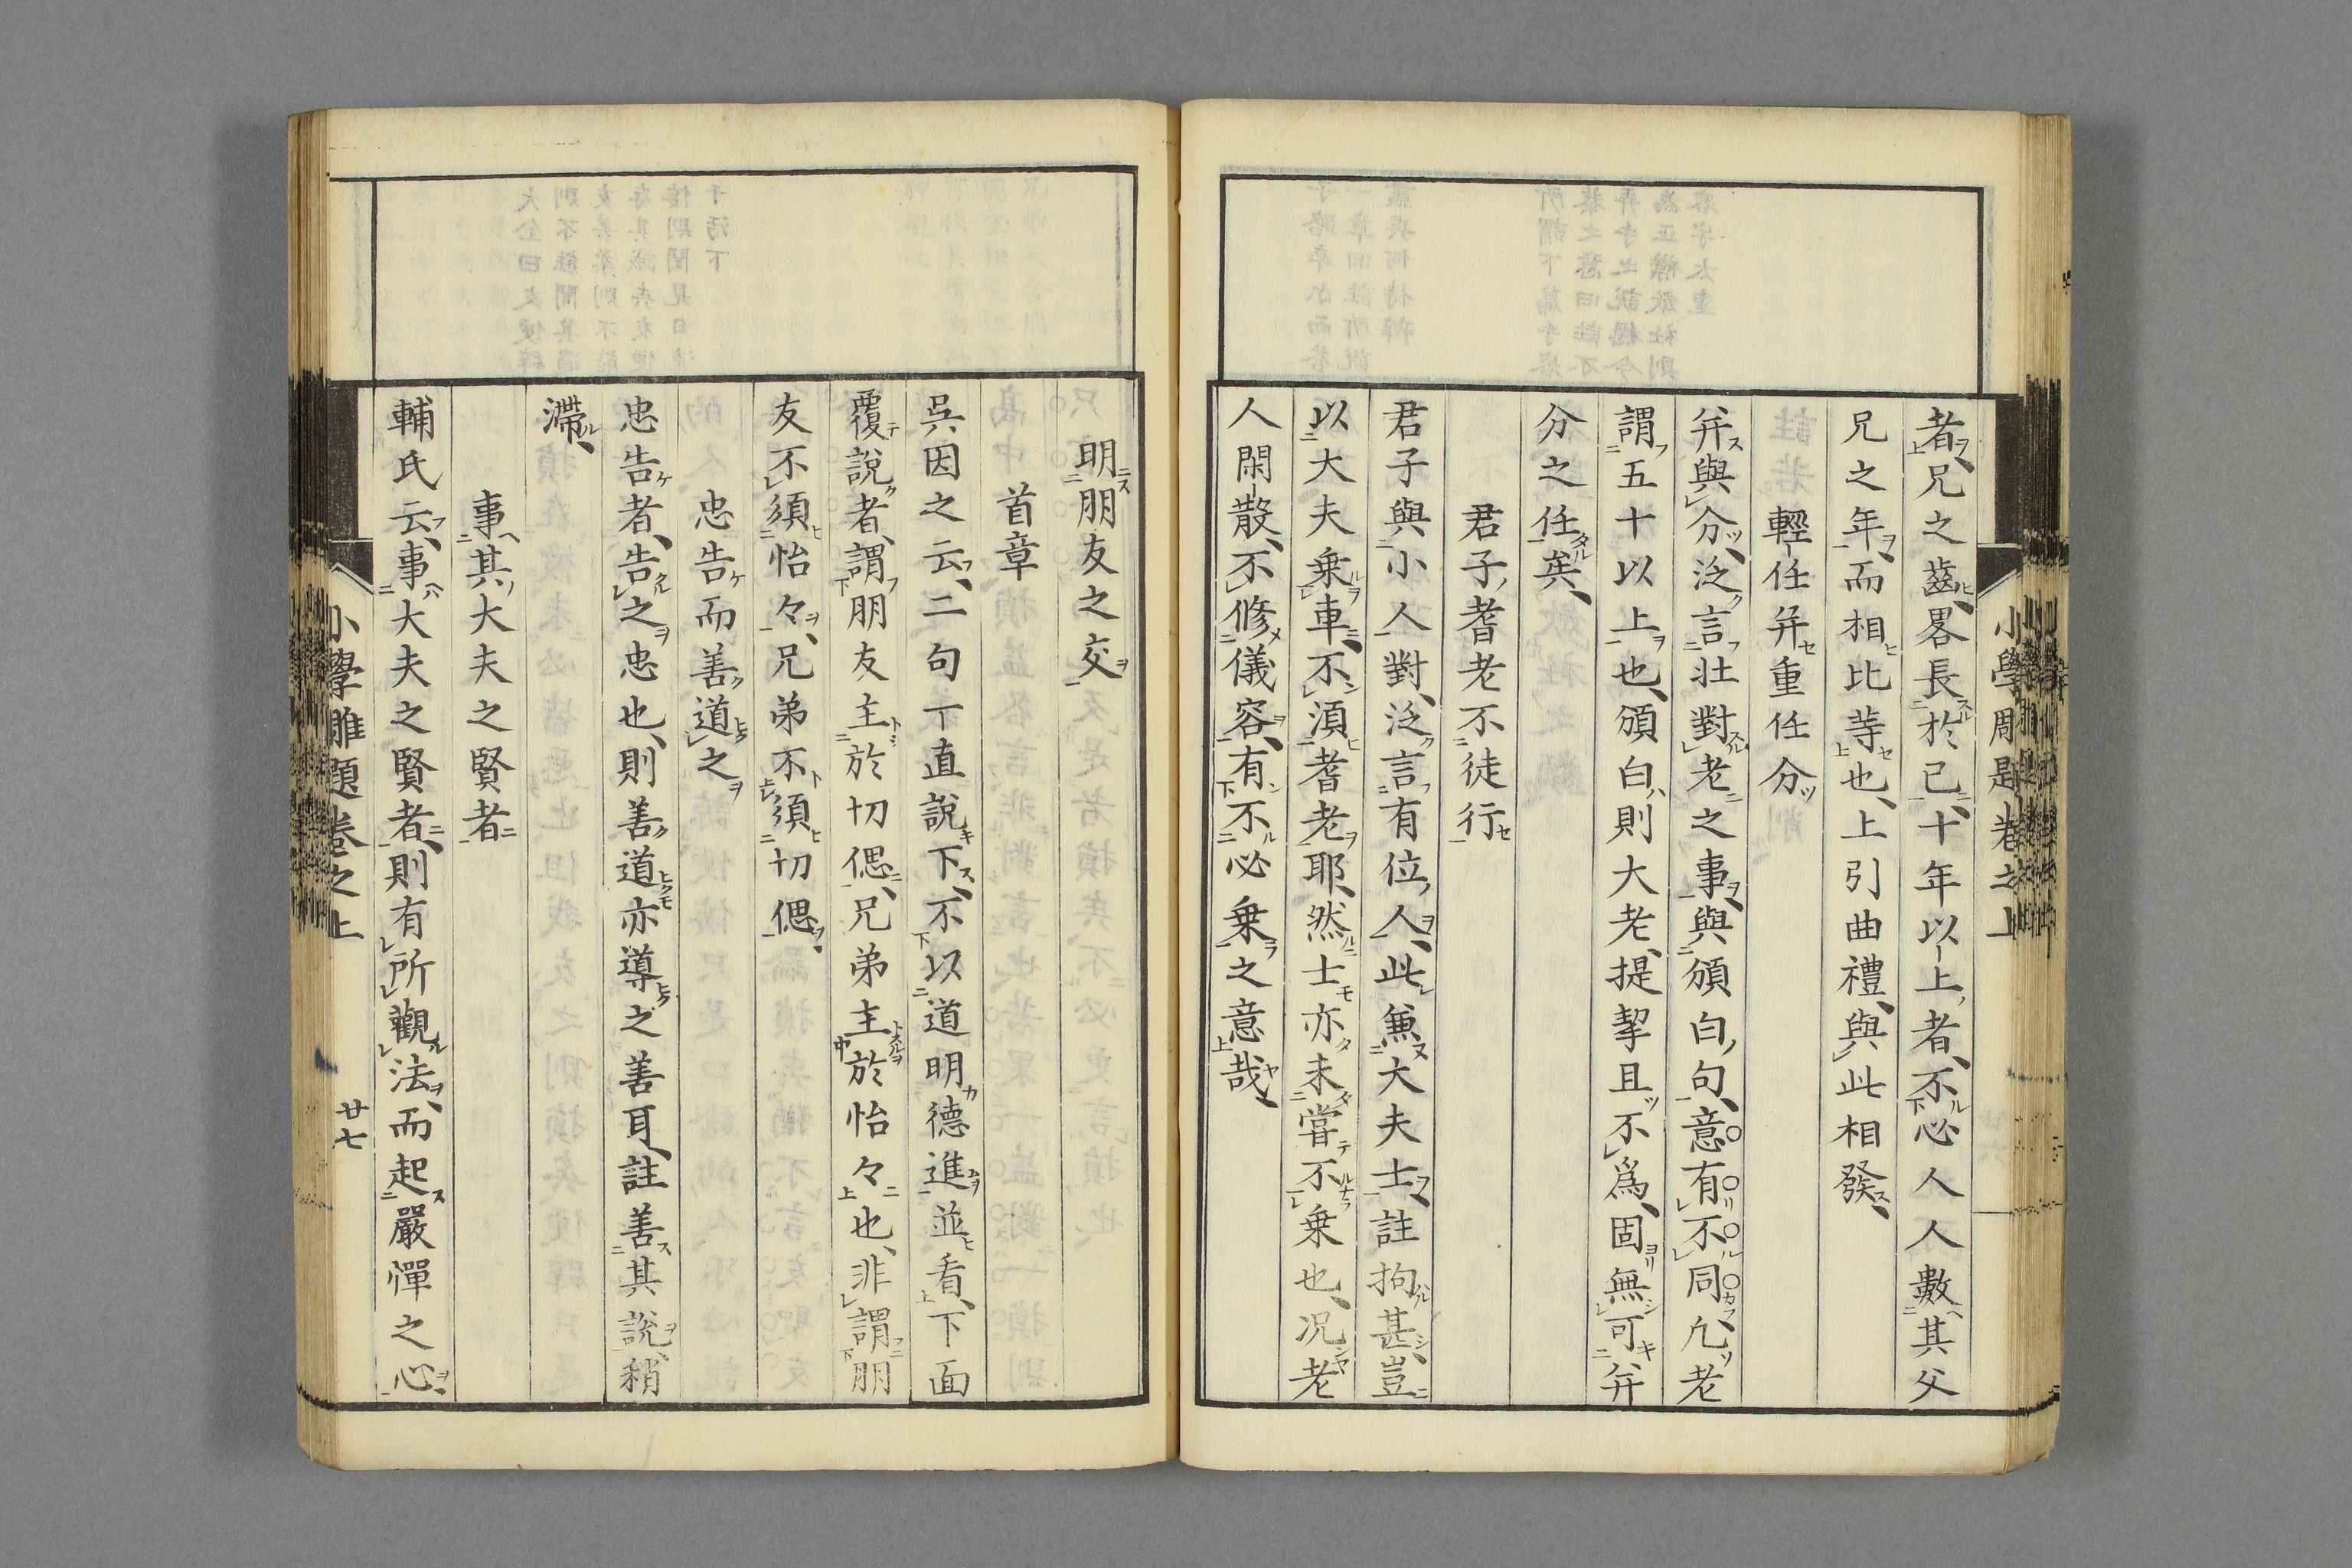 者、兄之齒、畧長於己、十年以上者、不必人人數其父
兄之年、而相比等也、上引曲禮、與此相發、
輕任并重任分
并與分、泛言壯對老之事、與頒白句、意有不同、凢老
謂五十以上也、頒白則大老、提挈且不爲、固無可并
分之任矣、
君子耆老不徒行
君子與小人對、泛言有位人、此兼大夫士、註拘甚、豈
以大夫乗車、不須耆老耶、然士亦未嘗不乗也、况老
人閑散、不修儀容、有不必乗之意哉、
明朋友之交
首章
吳因之云、二句一直説下、不以道明德進並看、下面
覆説者、謂朋友主於切偲、兄弟主於怡々也、非謂朋
友不須怡々、兄弟不須切偲、
忠告而善道之
忠告者、告之忠也、則善道亦導之善耳、註善其説、稍
滯、
事其大夫之賢者
輔氏云、事大夫之賢者、則有所觀法、而起嚴憚之心、
小學雕題卷之上
廿七